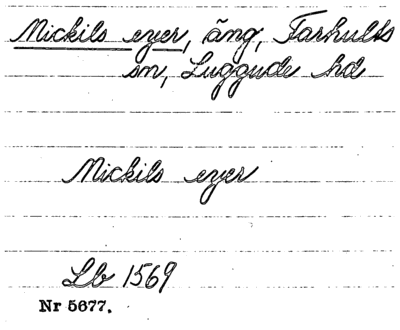 Mickils eyer, äng, Farhults
sn, Luggude hd
Mickils eyer
Lb 1569
Nr 5677.